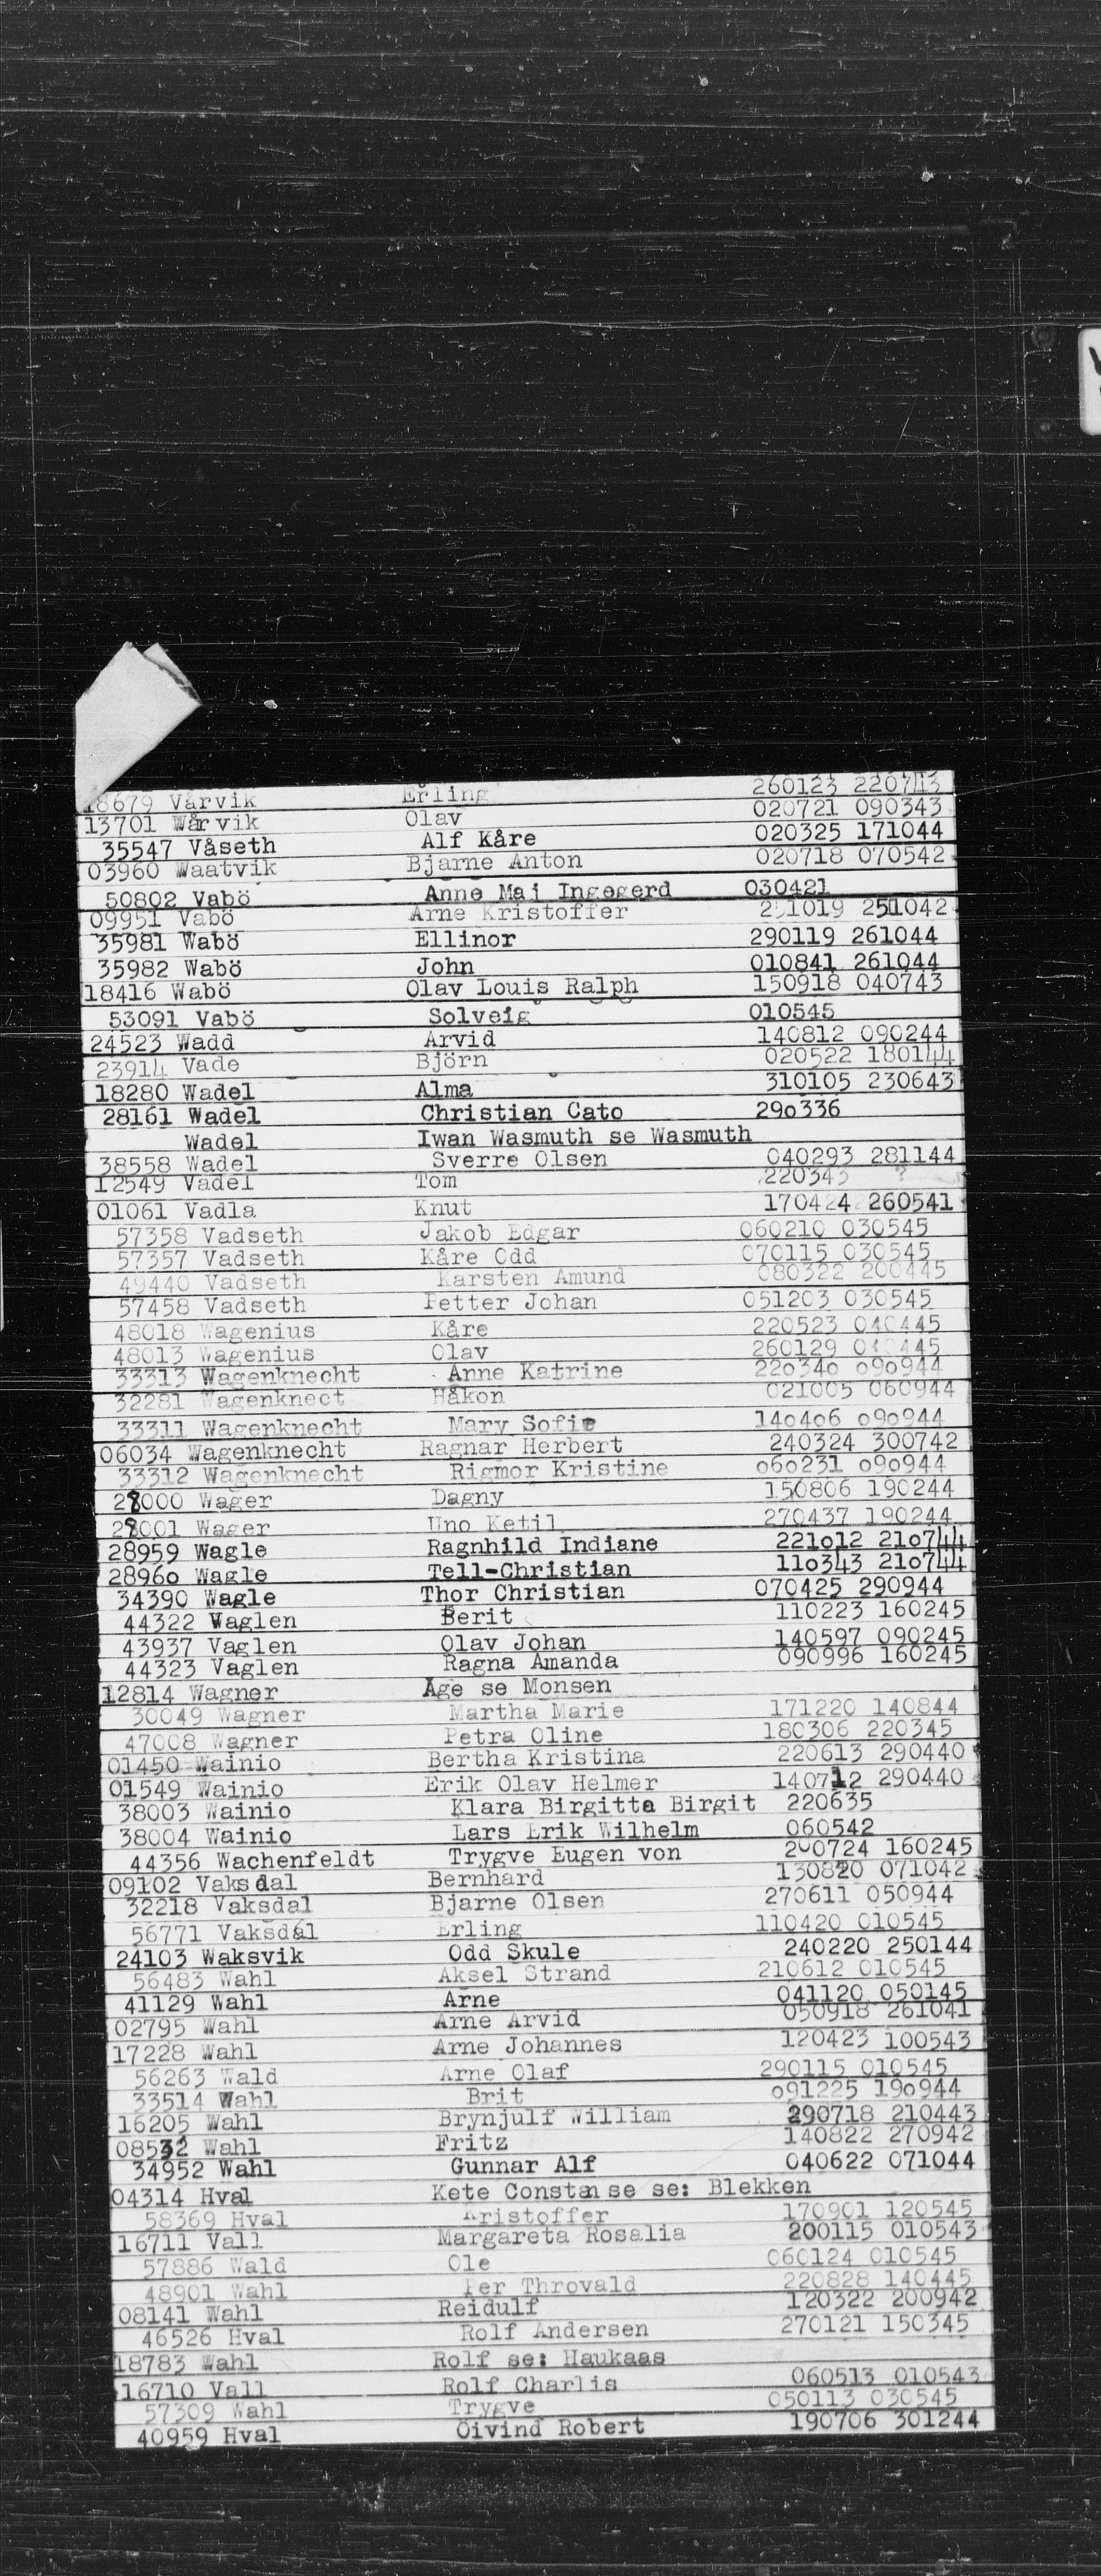 18679 Vårvik Erling 260123 220743
13701 Wårvik Olav 020721 090343
35547 Våseth Alf Kåre 020325 171044
03960 Waatvik Bjarne Anton 020718 070542
50802 Vabö Anne Maj Ingegerd 030421
09951 Vabö Arne Kristoffer 251042
35981 Wabö Ellinor 290119 261044
35982 Wabö John 010841 261044
18416 Wabö Olav Louis Ralph 150918 040743
53091 Vabö Solveig 010545
24523 Wadd Arvid 140812 090244
23914 Vade Björn 020522 180144
18280 Wadel Alma 310105 230643
28161 Wadel Christian Cato 290336
Wadel Iwan Wasmuth se Wasmuth
38558 Wadel Sverre Olsen 040293 281144
12549 Vadel Tom 220343 ?
01061 Vadla Knut 170424 260541
57358 Vadseth Jakob Edgar 060210 030545
57357 Vadseth Kåre Odd 070115 030545
49440 Vadseth Karsten Amund 080322 200445
57458 Vadseth Petter Johan 051203 030545
48018 Wagenius Kåre 220523 040445
48013 Wagenius Olav 260129 040445
33313 Wagenknecht Anne Katrine 220340 090944
32281 Wagenknect Håkon 021005 060944
33311 Wagenknecht Mary Sofie 140406 090944
06034 Wagenknecht Ragnar Herbert 240324 300742
33312 Wagenknecht Rigmor Kristine 060231 090944
28000 Wager Dagny 150806 190244
28001 Wager Uno Ketil 270437 190244
28959 Wagle Ragnhild Indiane 221012 210744
28960 Wagle Tell-Christian 110343 210744
34390 Wagle Thor Christian 070425 290944
44322 Vaglen Berit 110223 160245
43937 Vaglen Olav Johan 140597 090245
44323 Vaglen Ragna Amanda 090996 160245
12814 Wagner Åge se Monsen
30049 Wagner Martha Marie 171220 140844
47008 Wagner Petra Oline 180306 220345
01450 Wainio Bertha Kristina 220613 290440
01549 Wainio Erik Olav Helmer 140712 290440
38003 Wainio Klara Birgitta Birgit 220635
38004 Wainio Lars Erik Wilhelm 060542
44356 Wachenfeldt Trygve Eugen von 200724 160245
09102 Vaksdal Bernhard 130820 071042
32218 Vaksdal Bjarne Olsen 270611 050944
56771 Vaksdal Erling 110420 010545
24103 Waksvik Odd Skule 240220 250144
56483 Wahl Aksel Strand 210612 010545
41129 Wahl Arne 041120 050145
02795 Wahl Arne Arvid 050918 261041
17228 Wahl Arne Johannes 120423 100543
56263 Wald Arne Olaf 290115 010545
33514 Wahl Brit 091225 190944
16205 Wahl Brynjulf William 290718 210443
08532 Wahl Fritz 140822 270942
34952 Wahl Gunnar Alf 040622 071044
04314 Hval Kete Constanse se: Blekken
58369 Hval Kristoffer 170901 120545
16711 Vall Margareta Rosalia 200115 010543
57886 Wald Ole 060124 010545
48901 Wahl Per Throvald 220828 140445
08141 Wahl Reidulf 120322 200942
46526 Hval Rolf Andersen 270121 150345
18783 Wahl Rolf se: Haukaas
16710 Vall Rolf Charlis 060513 010543
57309 Wahl Trygve 050113 030545
40959 Hval Oivind Robert 190706 301244